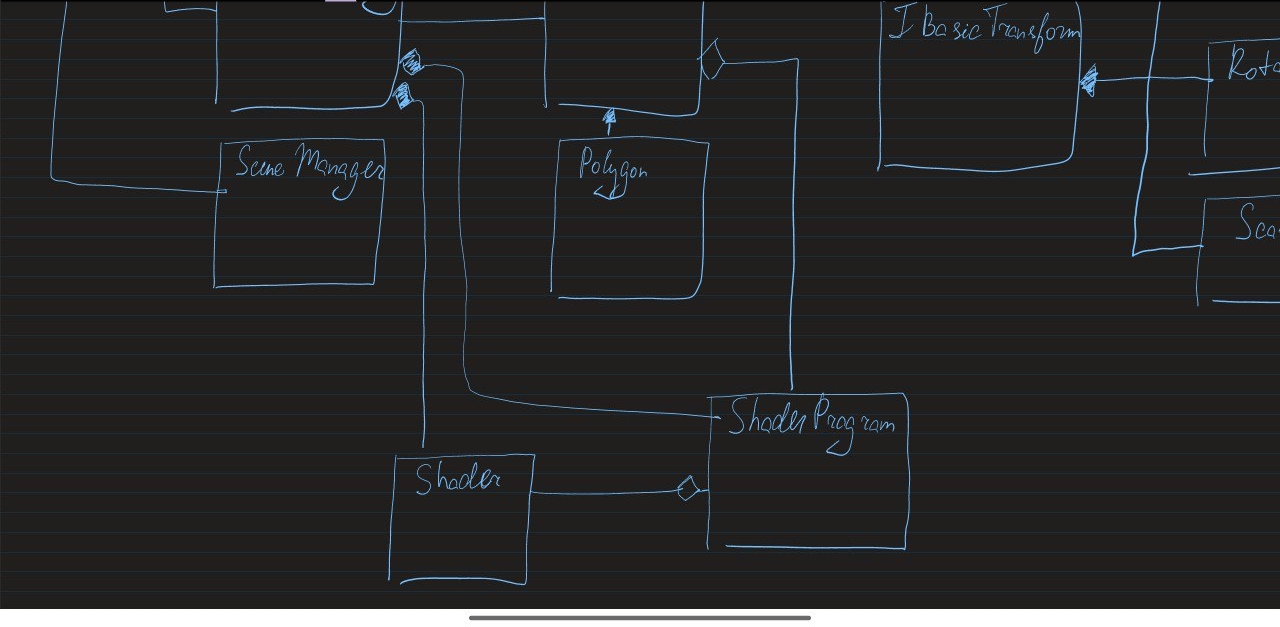 I Basic Transform
Rota
Scene Manager
Polygon
Sca
Shader Program
Shader